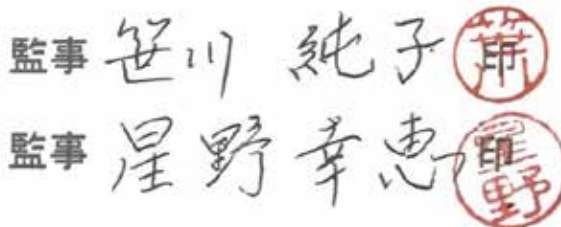 監事 笹川 純子 印
監事 星野 幸恵 印